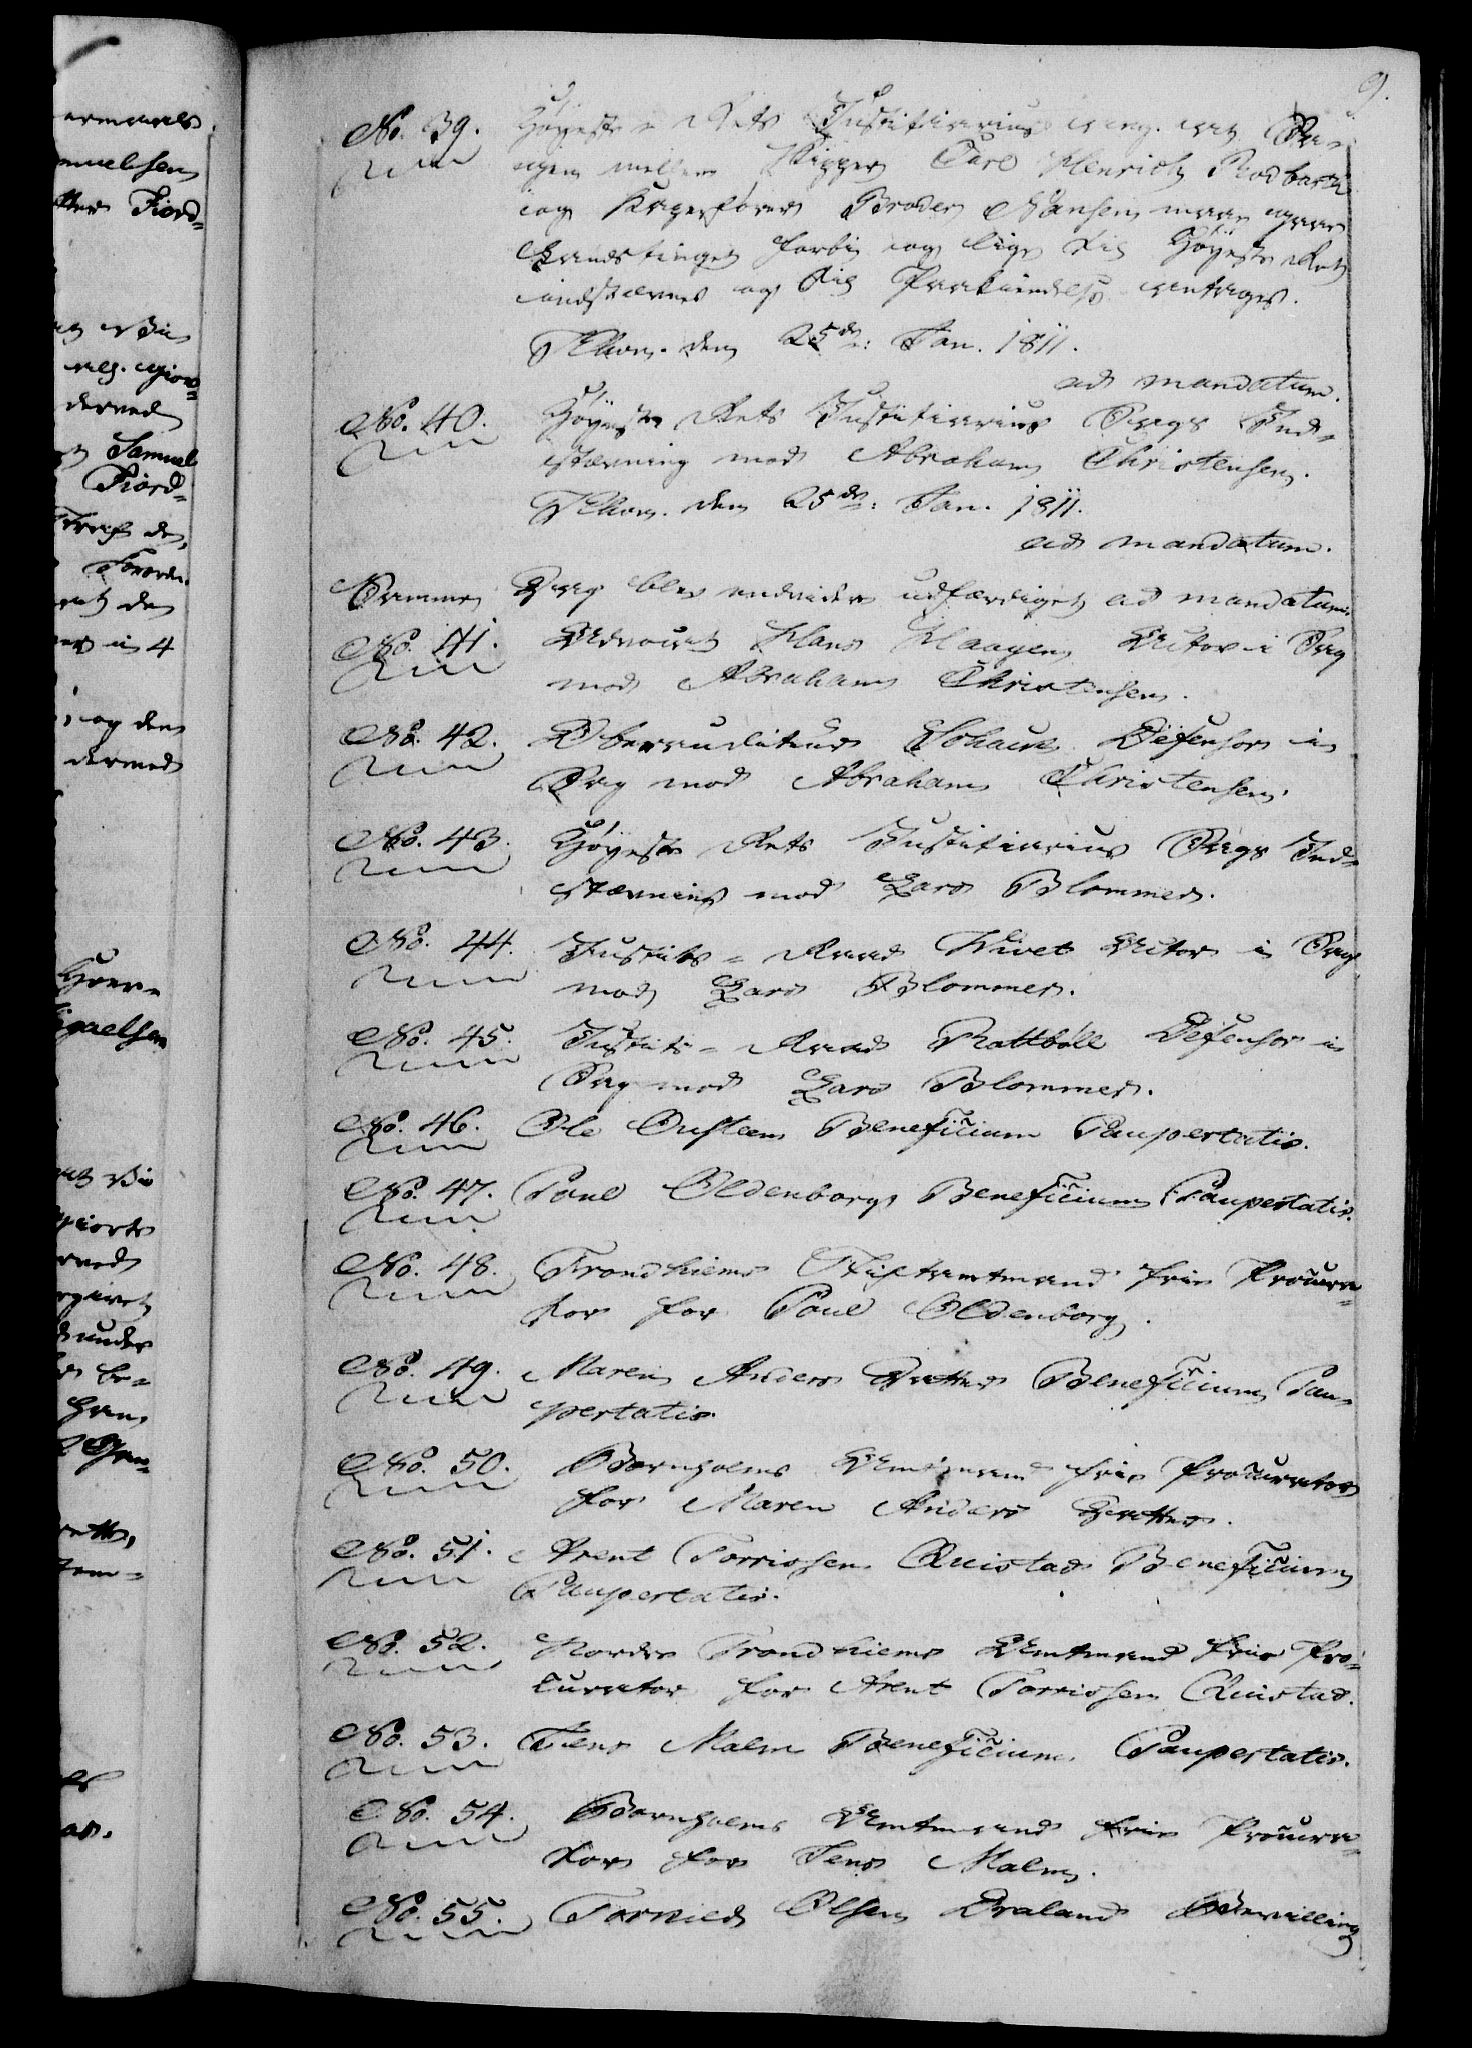 9.
No. 39. Høyeste-Rets Justitiarius ang. at Sa-
gen mellem Kigger Carl Henrich Rodbarth
og Kageførers Broder Hansen maae gaae
Landstinget forbi og lige til Høyeste Ret
indstævnes og til Paakiendelse antages.
Khavn. den 25de: Jan. 1811.
ad mandatum.
No. 40. Høyeste Rets Justitiarius Sags Ind-
stævning mod Abraham Christensen.
Khavn. den 25de: Jan. 1811.
ad mandatum.
Samme Dag blev endvidere udfærdiget ad mandatum
No. 41. Advocat Hans Haagen Actor i Sag
mod Abraham Christensen.
No. 42. Oberauditeur Schauw Defensor i
Sag mod Abraham Christensen.
No. 43. Høyeste Rets Justitiarius Sags Ind-
stævning mod Lars Blommes.
No. 44. Justits-Raad Wivet Actor i Sag
mod Lars Blommes.
No. 45. Justits-Raad Rottbøll Defensor i
Sag mod Lars Blommes.
No. 46. Ole Ousteen Beneficium Paupertatis.
No. 47. Poul Oldenborg Beneficium Paupertatis.
No. 48. Trondhiems Stiftamtmand frie Procura-
tor for Poul Oldenborg.
No. 49. Maren Anders Datter Beneficium Pau-
pertatis.
No. 50. Bornholms Amtmand frie Procurator
for Maren Anders Datter.
No. 51. Arent Torrissen Quistad Beneficium
Paupertatis.
No. 52. Nordre Trondhiems Amtmand frie Pro-
curator for Arent Torrissen Quistad.
No. 53. Jens Malm Beneficium Paupertatis.
No. 54. Bornholms Amtmand frie Procura-
tor for Jens Malm.
No. 55. Torkild Olsen Draland Bevilling